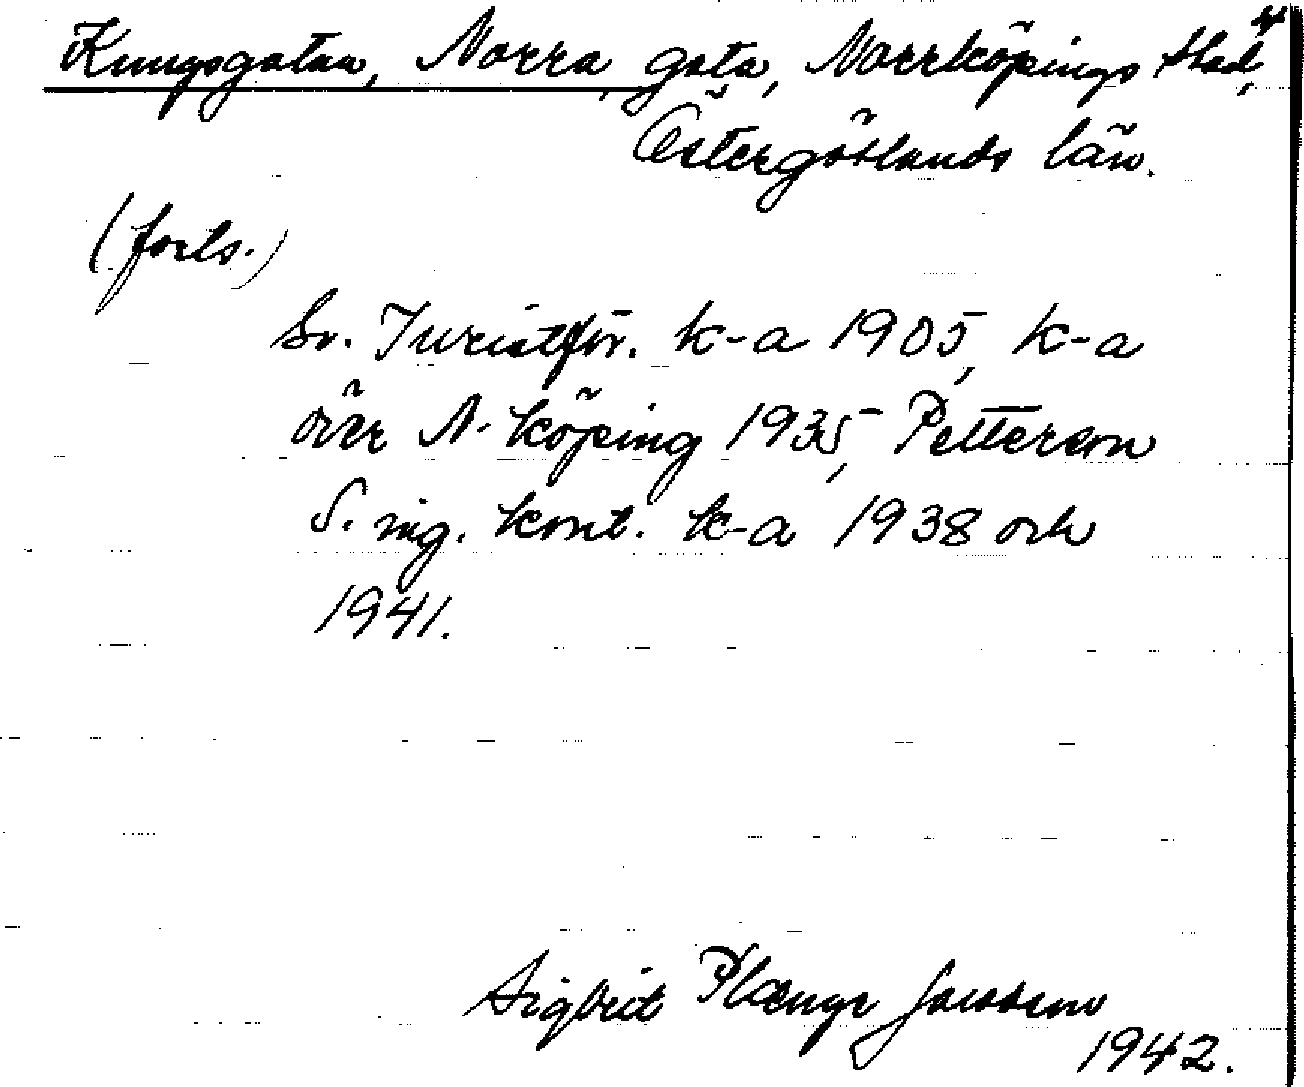 Kungsgatan, Norra, gata, Norrköpings stad,
Östergötlands län.
(forts.)
Sv. Juristför. k-a 1905, k-a
över N-köping 1935, Petterson
S. ing. kont. k-a 1938 och
1941.
Sigbrit Plænge Jacobson
1942.